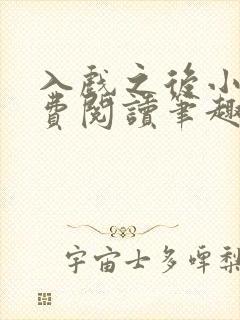 入戲之後小
費閱讀筆趣
宇宙士多啤梨